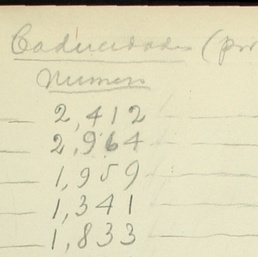 Caducidades (por
Numero
2,412
2,964
1,959
1,341
1,833